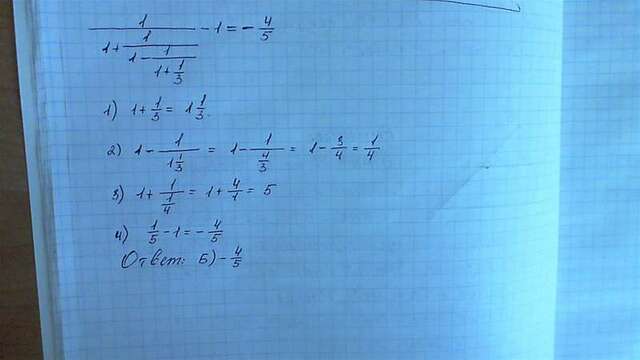 1/(1+1/(1-1/(1+1/3))) - 1 = - 4/5
1) 1+1/3 = 1 1/3.
2) 1 - 1/(1 1/3) = 1 - 1/(4/3) = 1 - 3/4 = 1/4
3) 1 + 1/(1/4) = 1 + 4/1 = 5
4) 1/5 - 1 = - 4/5
Ответ: Б) - 4/5